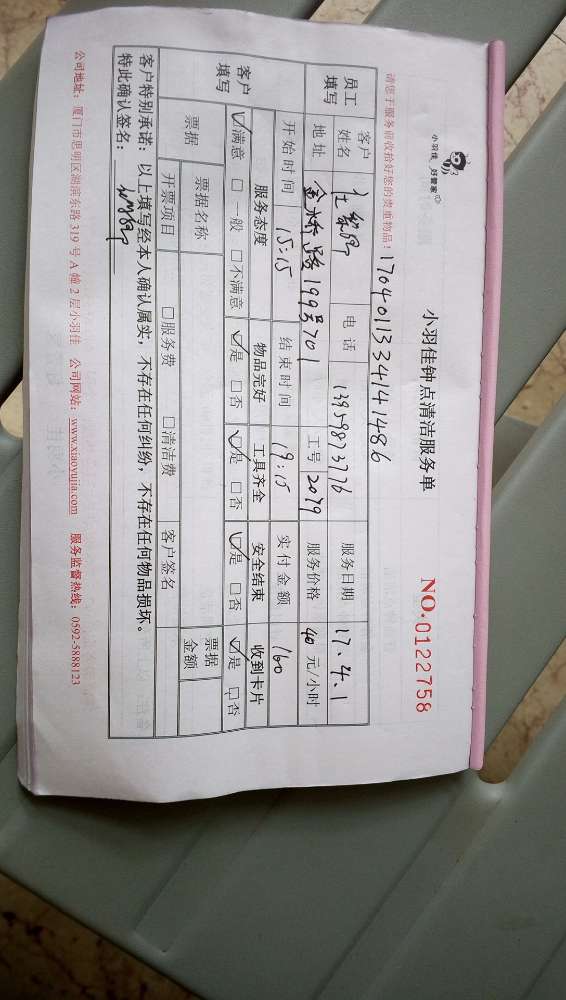 小羽佳 好管家
小羽佳钟点清洁服务单
NO.0122758
请您于服务前收拾好您的贵重物品！
1704011334141486
员工填写 客户姓名 电话 13959873776 服务日期 17.4.1
地址 金桥路199号701 工号 2079 服务价格 40 元/小时
开始时间 15:15 结束时间 19:15 实付金额 160
客户填写 服务态度 物品完好 工具齐全 安全结束 收到卡片
☑满意 □一般 □不满意 ☑是 □否 ☑是 □否 ☑是 □否 ☑是 □否
票据 票据名称 □服务费 □清洁费 客户签名 票据金额
开票项目
客户特别承诺：以上填写经本人确认属实，不存在任何纠纷，不存在任何物品损坏。
特此确认签名：
公司地址：厦门市思明区湖滨东路 319 号 A 幢 2 层小羽佳 公司网站：www.xiaoyujia.com 服务监督热线：0592-5888123